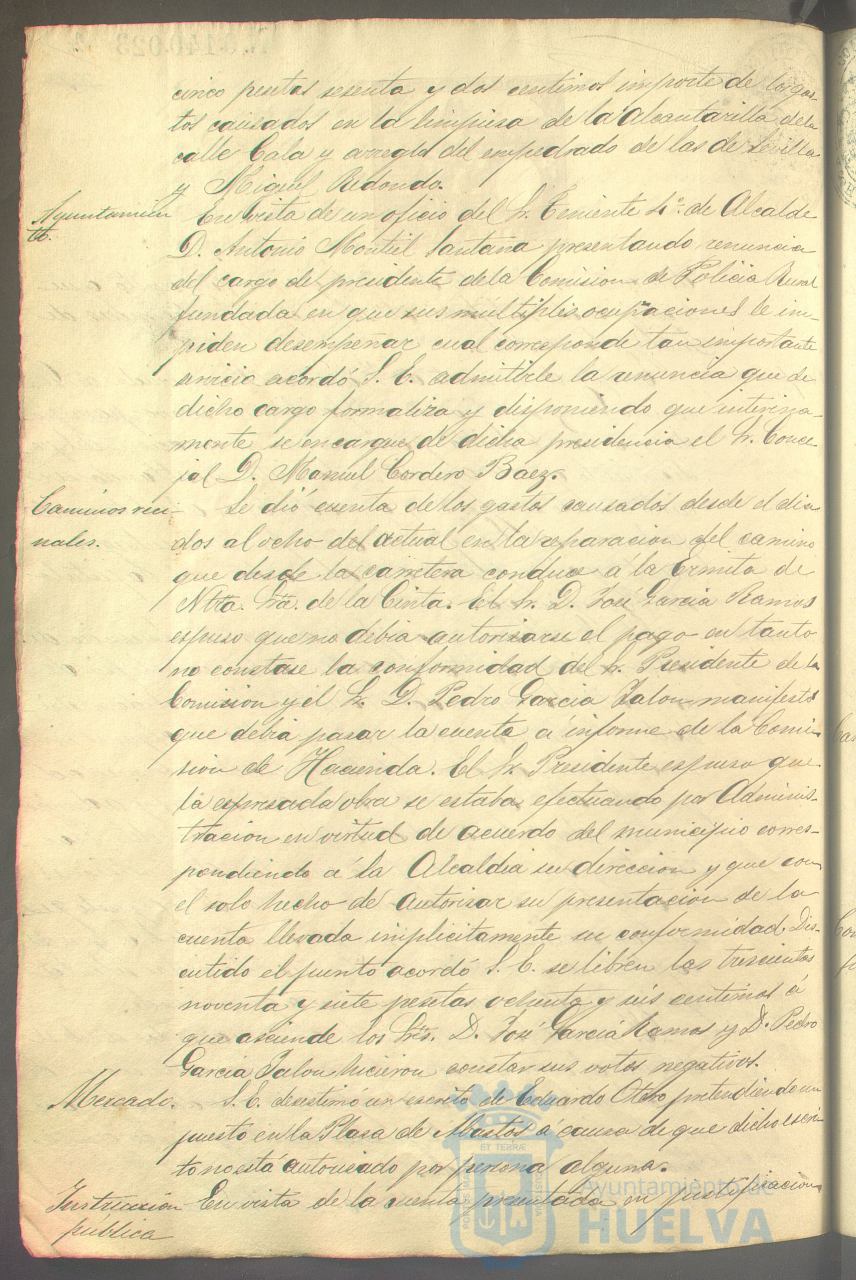 cinco pesetas sesenta y dos centimos importe de los gas-
tos causados en la limpiesa de la Alcantarilla de la
calle Cala y arreglo del empedrado de las de Sevilla
y Miguel Redondo.
Ayuntamien
to.
En vista de un oficio del Sr. Teniente 4º. de Alcalde
D. Antonio Montiel Santana presentando renuncia
del cargo de presidente de la Comision de Policia Rural
fundada en que sus multiples ocupaciones le im-
piden desempeñar cual corresponde tan importante
servicio acordó S. E. admitirle la renuncia que de
dicho cargo formaliza y disponiendo que interina-
mente se encargue de dicha presidencia el Sr. Conce-
jal D. Manuel Cordero Baez.
Caminos veci-
nales.
Se dió cuenta de los gastos causados desde el dia
dos al ocho del actual en la reparacion del camino
que desde la carretera conduce á la Ermita de
Ntra. Sra. de la Cinta. El Sr. D. José Garcia Ramos
espuso que no debia autorisarse el pago en tanto
no constase la conformidad del Sr. Presidente de la
Comision y el Sr. D. Pedro Garcia Jalon manifestó
que debia pasar la cuenta á informe de la Comi-
sion de Hacienda. El Sr. Presidente espuso que
la espresada obra se estaba efectuando por Adminis-
tracion en virtud de acuerdo del municipio corres-
pondiendo á la Alcaldia su direccion y que con
el solo hecho de autorisar su presentacion de la
cuenta llevada implicitamente su conformidad. Dis-
cutido el punto acordó S. E. se libren las trescientas
noventa y siete pesetas ochenta y seis centimos á
que asciende los Sres. D. José Garcia Ramos y D. Pedro
Garcia Jalon hicieron constar sus votos negativos.
Mercado.
S. E. desestimó un escrito de Eduardo Otero pretendiendo un
puesto en la Plasa de Abastos á causa de que dicho escri-
to no está autorisado por persona alguna.
Instruccion
publica
En vista de la cuenta presentada en justificacion
Ayuntamiento de
HUELVA